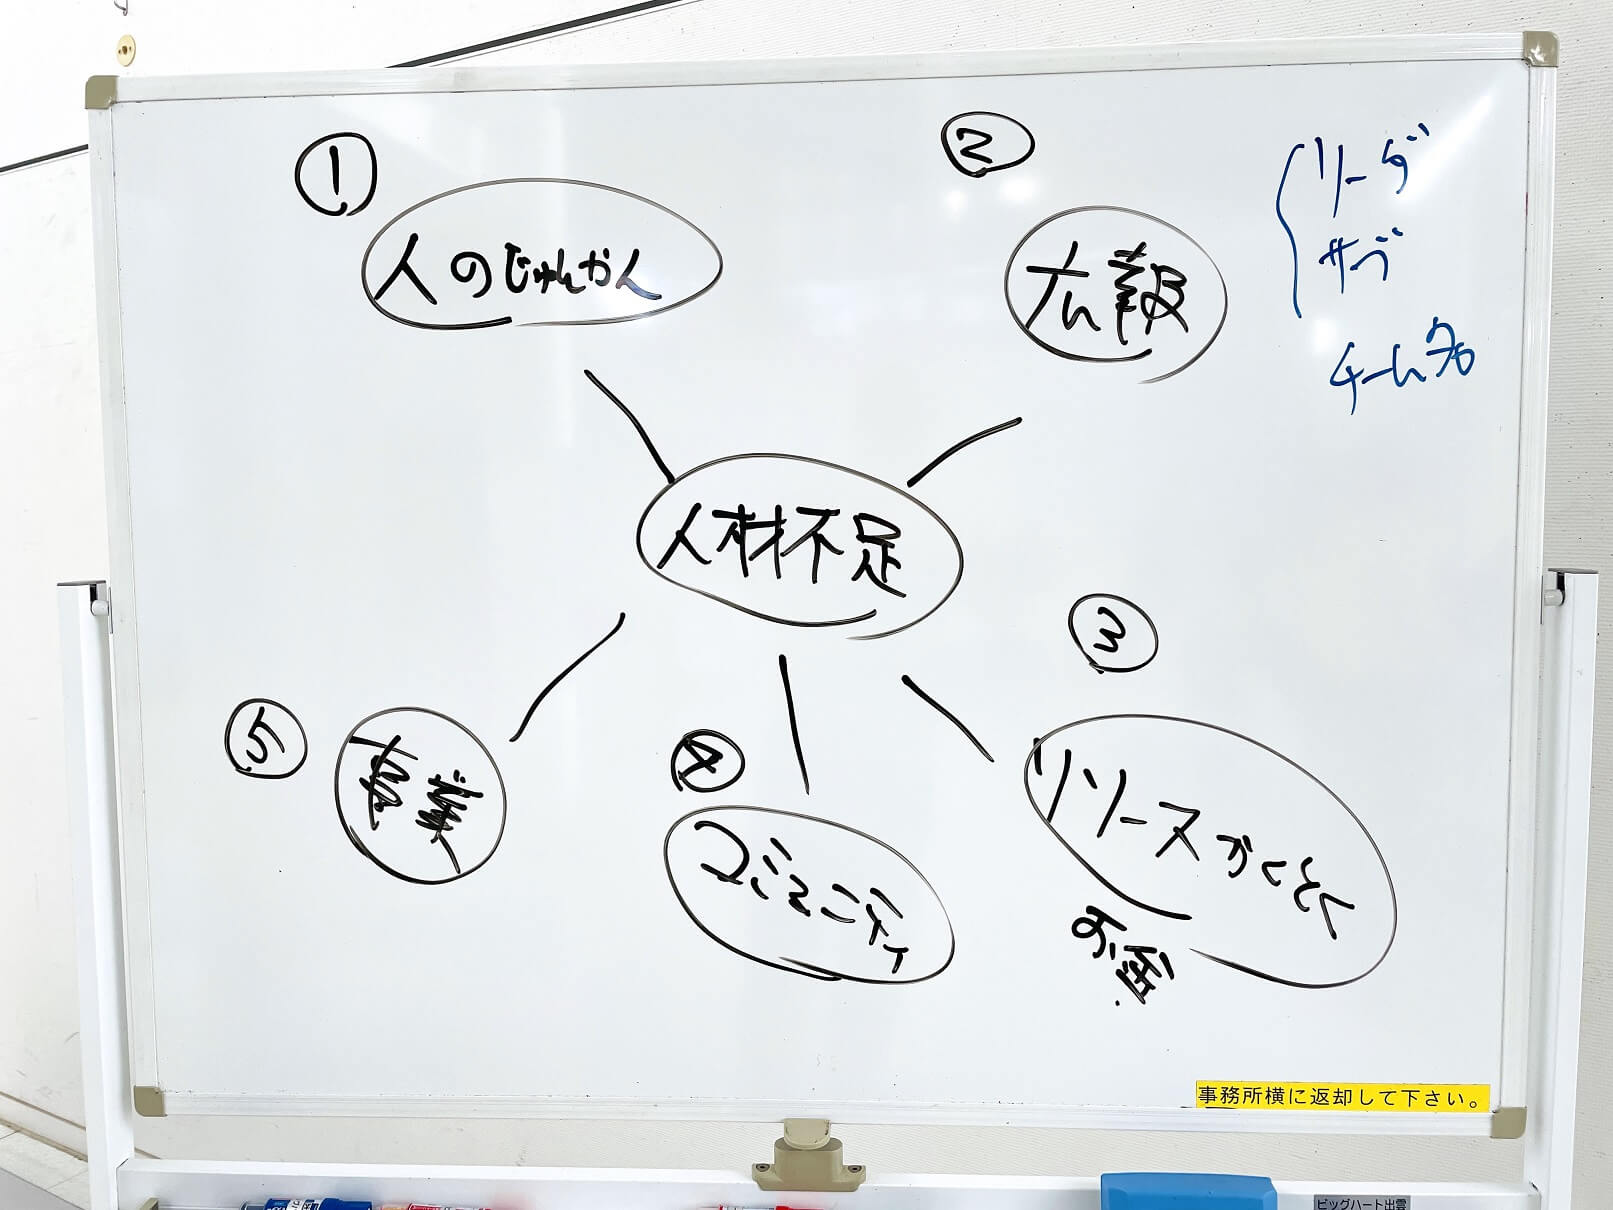 ①
人のじゅんかん
②
広報
リーダ
サブ
チーム名
人材不足
③
リソースかくとく
お金
④
コミュニティ
⑤
事業
事務所横に返却して下さい。
ビッグハート出雲